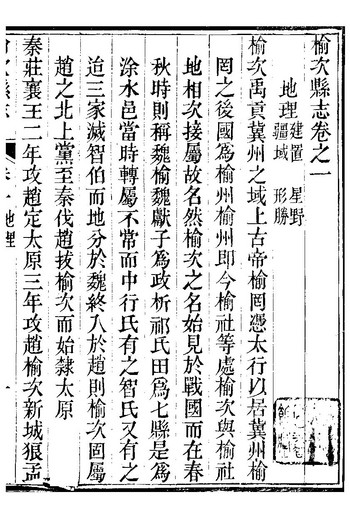 榆次縣志卷之一
地理 建置 星野 疆域 形勝
榆次禹貢冀州之域上古帝榆罔憑太行以居冀州榆
罔之後國為榆州榆州即今榆社等處榆次與榆社
地相次接屬故名然榆次之名始見於戰國而在春
秋時則稱魏榆魏獻子為政析祁氏田為七縣是為
涂水邑當時轉屬不常而中行氏有之智氏又有之
迨三家滅智伯而地分於魏終入於趙則榆次固屬
趙之北上黨至秦伐趙拔榆次而始隸太原
秦莊襄王二年攻趙定太原三年攻趙榆次新城狼孟
卷一 地理
一